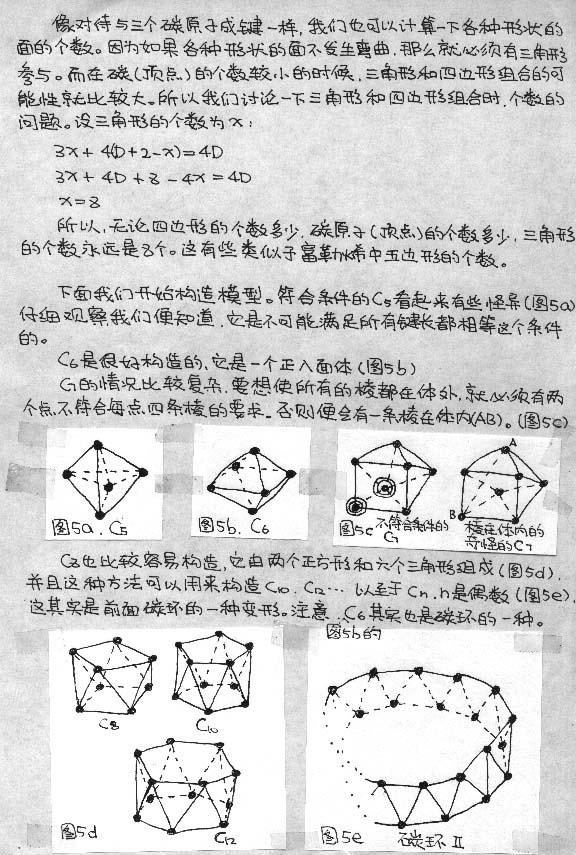 像对待与三个碳原子成键一样,我们也可以计算一下各种形状的
面的个数。因为如果各种形状的面不发生弯曲,那么就必须有三角形
参与。而在碳(顶点)的个数较小的时候,三角形和四边形组合的可
能性就比较大。所以我们讨论一下三角形和四边形组合时,个数的
问题。设三角形的个数为x:
3x+4(D+2-x)=4D
3x+4D+8-4x=4D
x=8
所以,无论四边形的个数多少,碳原子(顶点)的个数多少,三角形
的个数永远是8个。这有些类似于富勒烯中五边形的个数。
下面我们开始构造模型。符合条件的C5看起来有些怪异(图5a)
仔细观察我们便知道,它是不可能满足所有键长都相等这个条件
的。
C6是很好构造的,它是一个正八面体(图5b)
C7的情况比较复杂,要想使所有的棱都在体外,就必须有两
个点不符合每点四条棱的要求。否则便会有一条棱在体内(AB)。(图5c)
图5a. C5
图5b. C6
图5c 不符合条件的
C7
A
B
棱在体内的
奇怪的C7
C8也比较容易构造,它由两个正方形和六个三角形组成(图5d),
并且这种方法可以用来构造C10、C12… 以至于Cn,n是偶数(图5e),
这其实是前面碳环的一种变形。注意,C6其实也是碳环的一种。
图5b的
C8
C10
图5d
C12
图5e
碳环Ⅱ